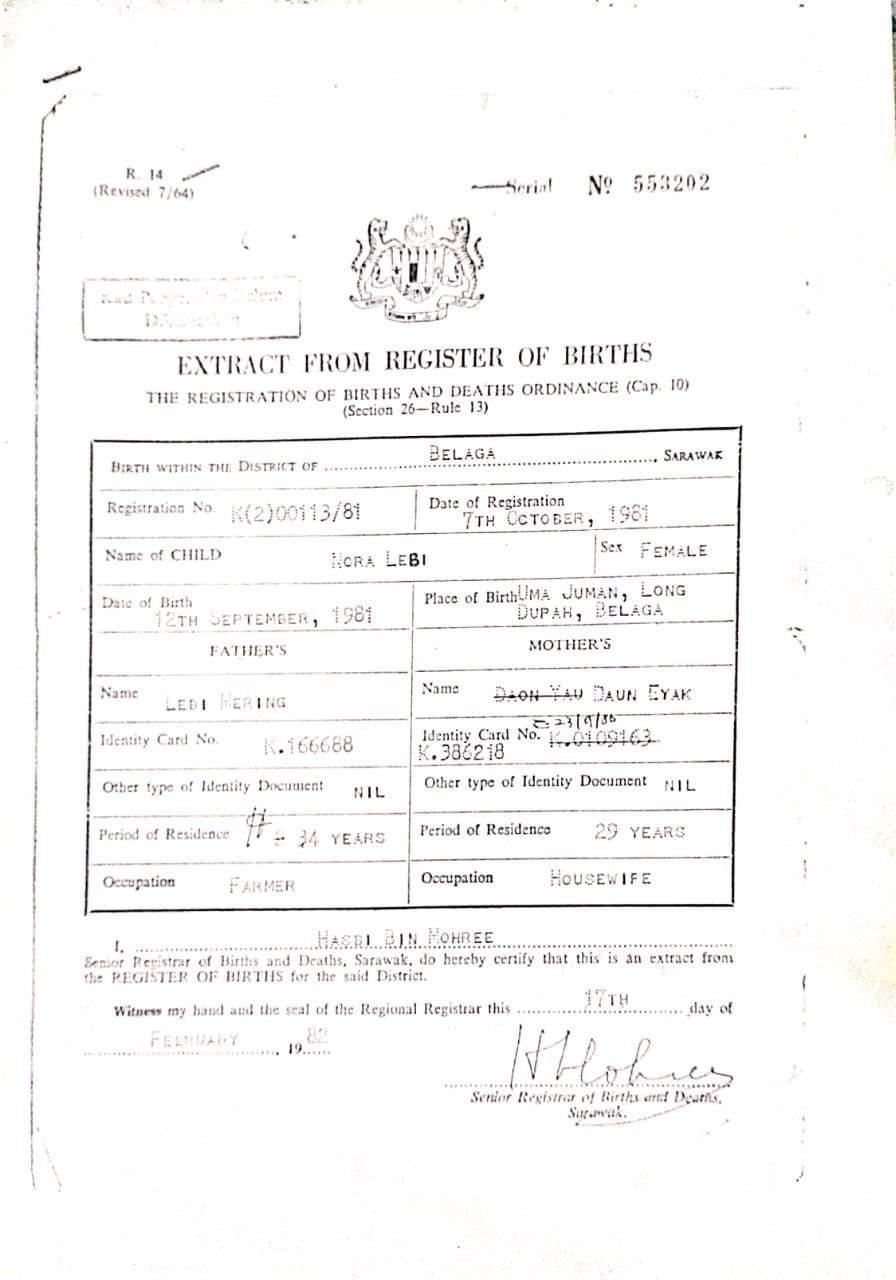 R. 14
(Revised 7/64)
Serial Nº 553202
EXTRACT FROM REGISTER OF BIRTHS
THE REGISTRATION OF BIRTHS AND DEATHS ORDINANCE (Cap. 10)
(Section 26—Rule 13)
BIRTH WITHIN THE DISTRICT OF BELAGA, SARAWAK
Registration No. K(2)00113/81
Date of Registration
7TH OCTOBER, 1981
Name of CHILD NORA LEBI
Sex FEMALE
Date of Birth
12TH SEPTEMBER, 1981
Place of Birth UMA JUMAN, LONG
DUPAH, BELAGA
FATHER'S
MOTHER'S
Name LEBI MERING
Name DAON YAU DAUN EYAK
23/9/86
Identity Card No. K.166688
Identity Card No. K.0109163
K.386218
Other type of Identity Document NIL
Other type of Identity Document NIL
Period of Residence 34 YEARS
Period of Residence 29 YEARS
Occupation FARMER
Occupation HOUSEWIFE
I, HASBI BIN MOHREE
Senior Registrar of Births and Deaths, Sarawak, do hereby certify that this is an extract from
the REGISTER OF BIRTHS for the said District.
Witness my hand and the seal of the Regional Registrar this 17TH day of
FEBRUARY, 1982
Senior Registrar of Births and Deaths,
Sarawak.